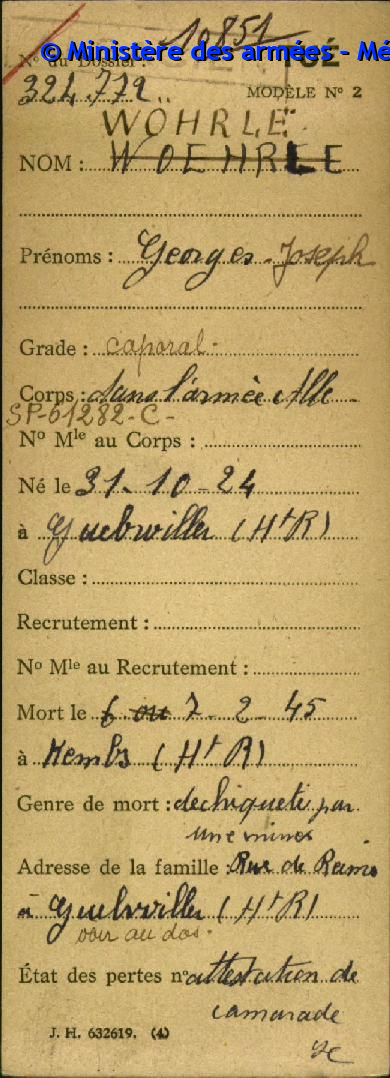 10851
© Ministère des armées - Mé
N° du Dossier :
324.772
MODÈLE N° 2
WÖHRLE
NOM : WOEHRLE
Prénoms : Georges - Joseph
Grade : caporal -
Corps : dans l'armée All
SP-61282-C-
N° Mle au Corps :
Né le 31-10-24
à Guebwiller (Ht R)
Classe :
Recrutement :
N° Mle au Recrutement :
Mort le 6 ou 7-2-45
à Kembs (Ht R)
Genre de mort : dechiqueté par
une mines
Adresse de la famille : Rue de Reims
à Guebwiller (Ht R)
voir au dos.
État des pertes n° attestation de
camarade
J. H. 632619. (4)